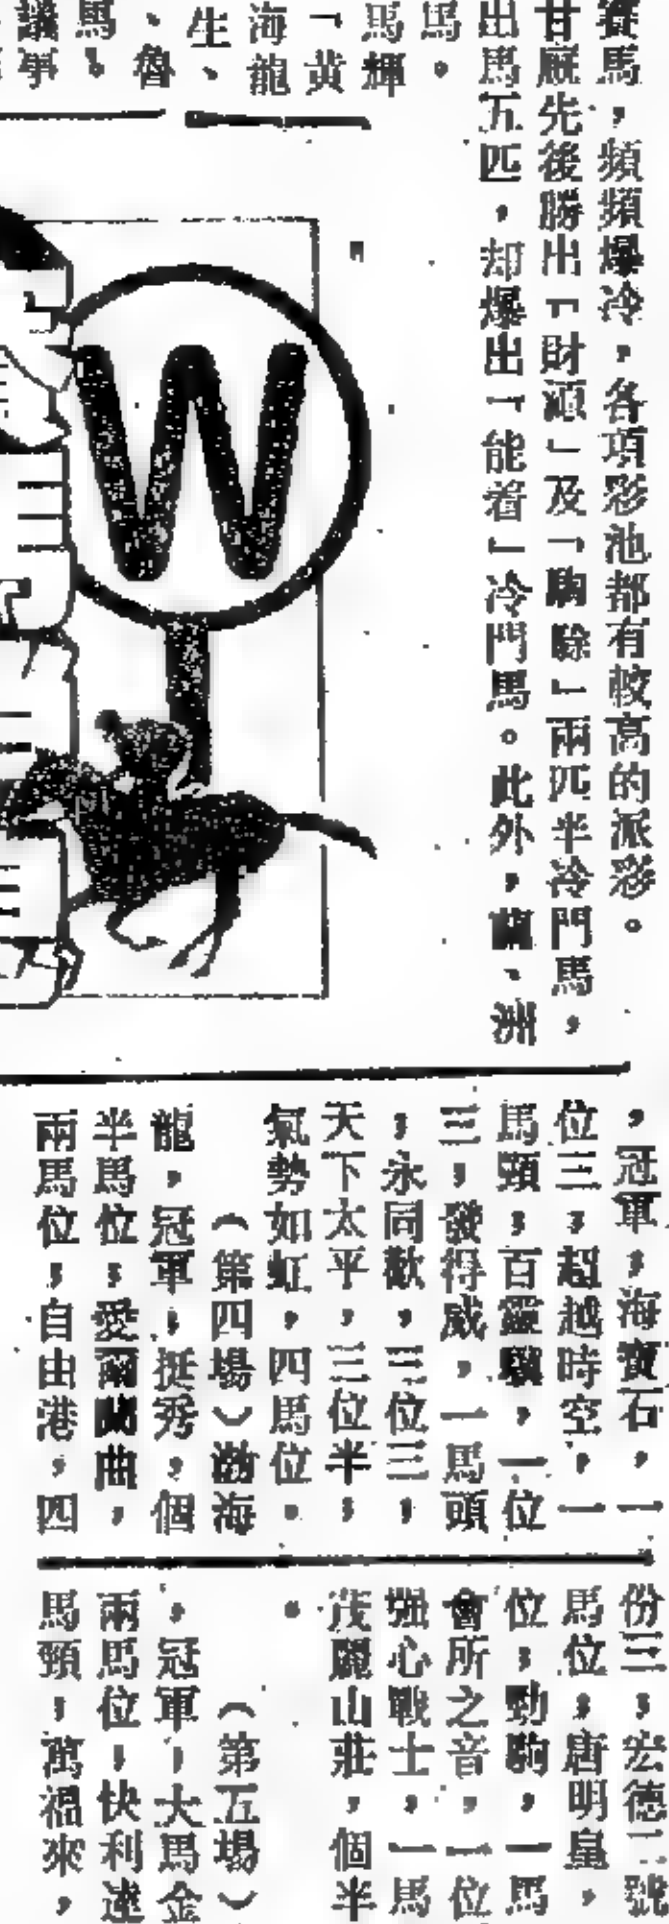 賽馬，頻頻爆冷，各項彩池都有較高的派彩。
甘廐先後勝出「財源」及「駒餘」兩匹半冷門馬，
出馬五匹，却爆出「能着」冷門馬。此外，蘭、洲
馬。
馬輝
「黃
海龍
生、
、魯
馬。
議爭
W
，冠軍，海寶石，一
位三，超越時空，一
馬頸，百靈驥，一位
三，發得威，一馬頭
，永同歡，三位三，
天下太平，三位半，
氣勢如虹，四馬位。
（第四場）渤海
龍，冠軍，挺秀，個
半馬位，愛爾蘭曲，
兩馬位，自由港，四
份三，宏德二號
馬位，唐明皇，
位，勁駒，一馬
會所之音，一位
強心戰士，一馬
茂麗山莊，個半
。
（第五場）
，冠軍，大馬金
兩馬位，快利達
馬頸，萬福來，